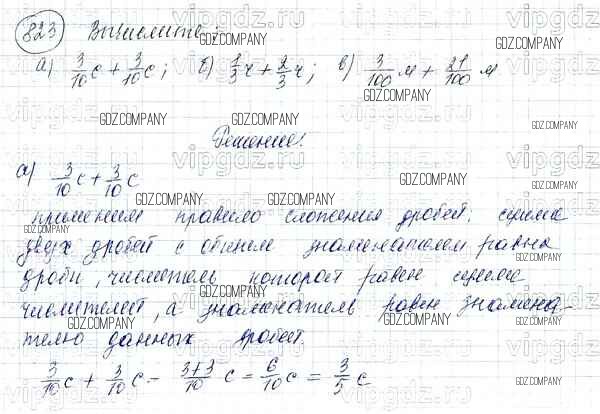 823 Вычислите:
а) 3/10 с + 3/10 с; б) 1/3 ч + 2/3 ч; в) 3/100 м + 21/100 м
Решение:
а) 3/10 с + 3/10 с
применим правило сложения дробей: сумма
двух дробей с общим знаменателем равна
дроби, числитель которой равен сумме
числителей, а знаменатель равен знамена-
телю данных дробей.
3/10 с + 3/10 с = 3+3/10 с = 6/10 с = 3/5 с
GDZ.COMPANY
vipgdz.ru